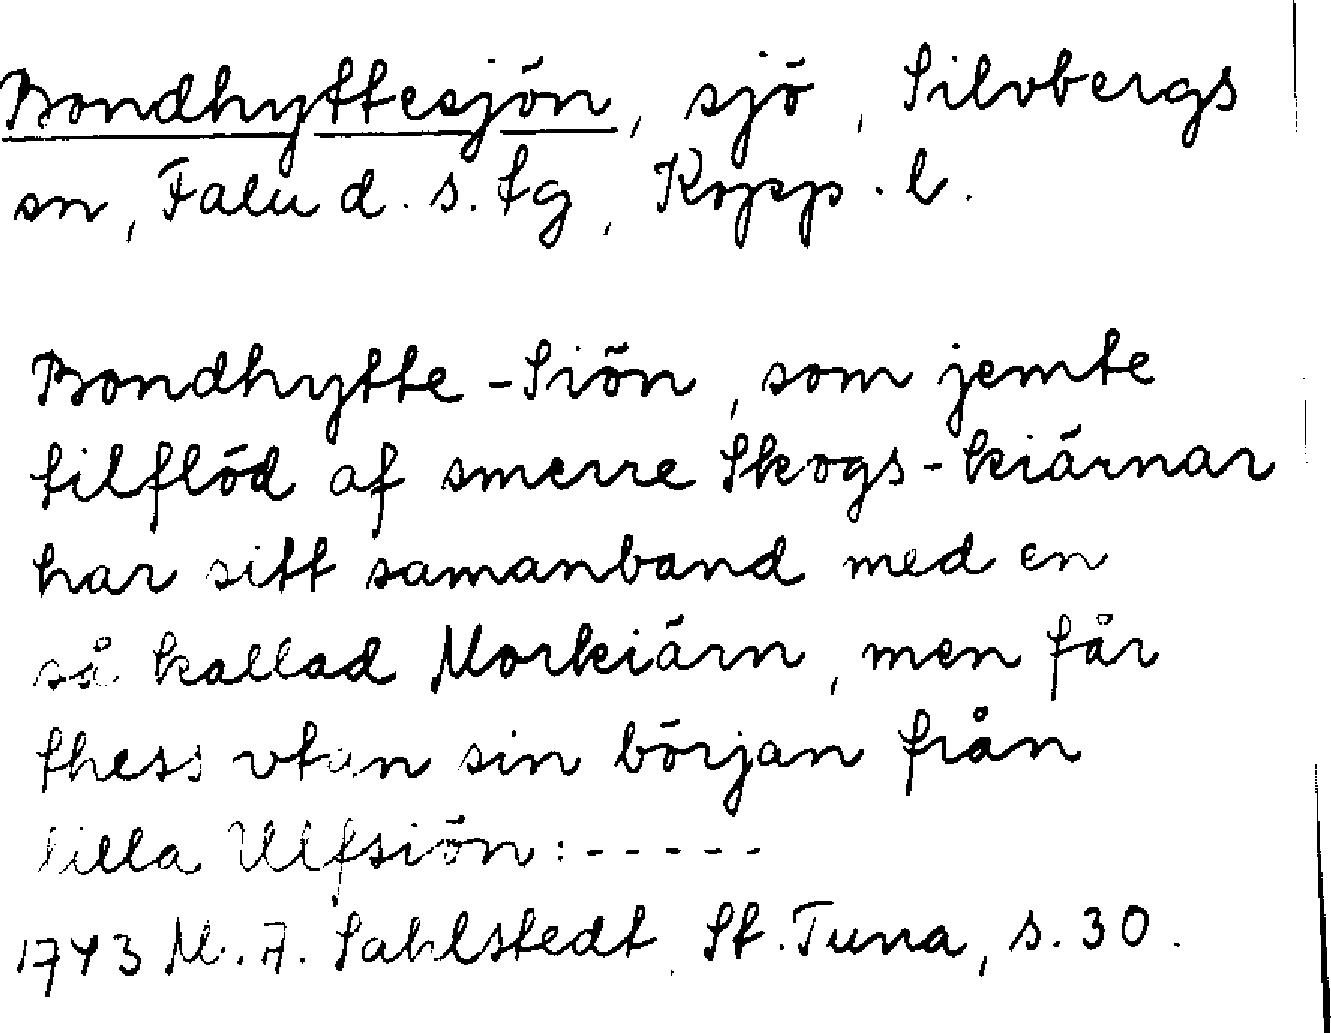 Bondhyttesjön, sjö, Silvbergs
sn, Falu d. s. tg, Kopp. l.
Bondhytte-Siön, som jemte
tilflöd af smerre Skogs-kiärnar
har sitt samanband med en
så kallad Morkiärn, men får
thess vtan sin början från
lilla Ulfsiön: - - - - -
1743 M. A. Sahlstedt, St. Tuna, s. 30.